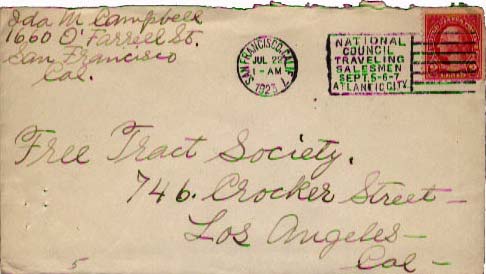 Ida M Campbell
1660 O'Farrell St.
San Francisco
Cal.
SAN FRANCISCO, CALIF.
JUL 22
1-AM
1923
NATIONAL
COUNCIL
TRAVELING
SALESMEN
SEPT. 5-6-7
ATLANTIC CITY
Free Tract Society.
746. Crocker Street-
Los Angeles-
Cal-
5